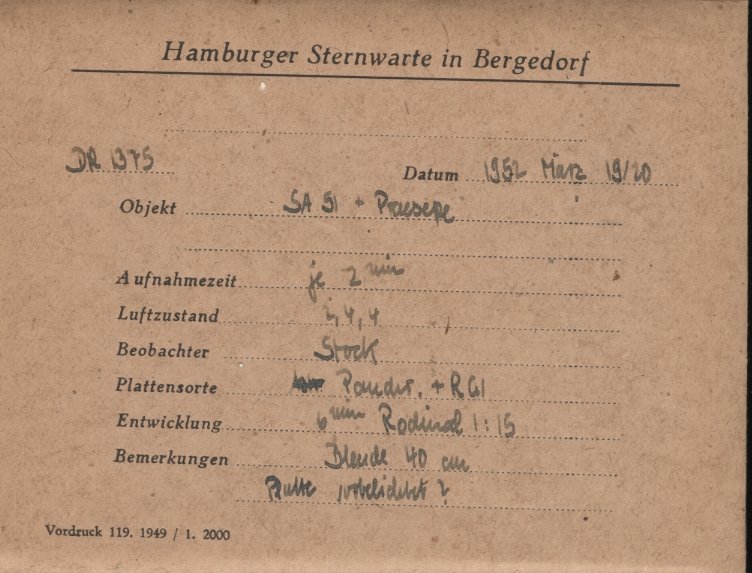 Hamburger Sternwarte in Bergedorf
DR 1375 Datum 1952 März 19/20
Objekt SA 51 + Praesepe
Aufnahmezeit je 2 min
Luftzustand 4, 4
Beobachter Stock
Plattensorte + RG1
Entwicklung 6 min Rodinal 1:15
Bemerkungen Blende 40 cm
Platte vorbelichtet ?
Vordruck 119. 1949 / 1. 2000